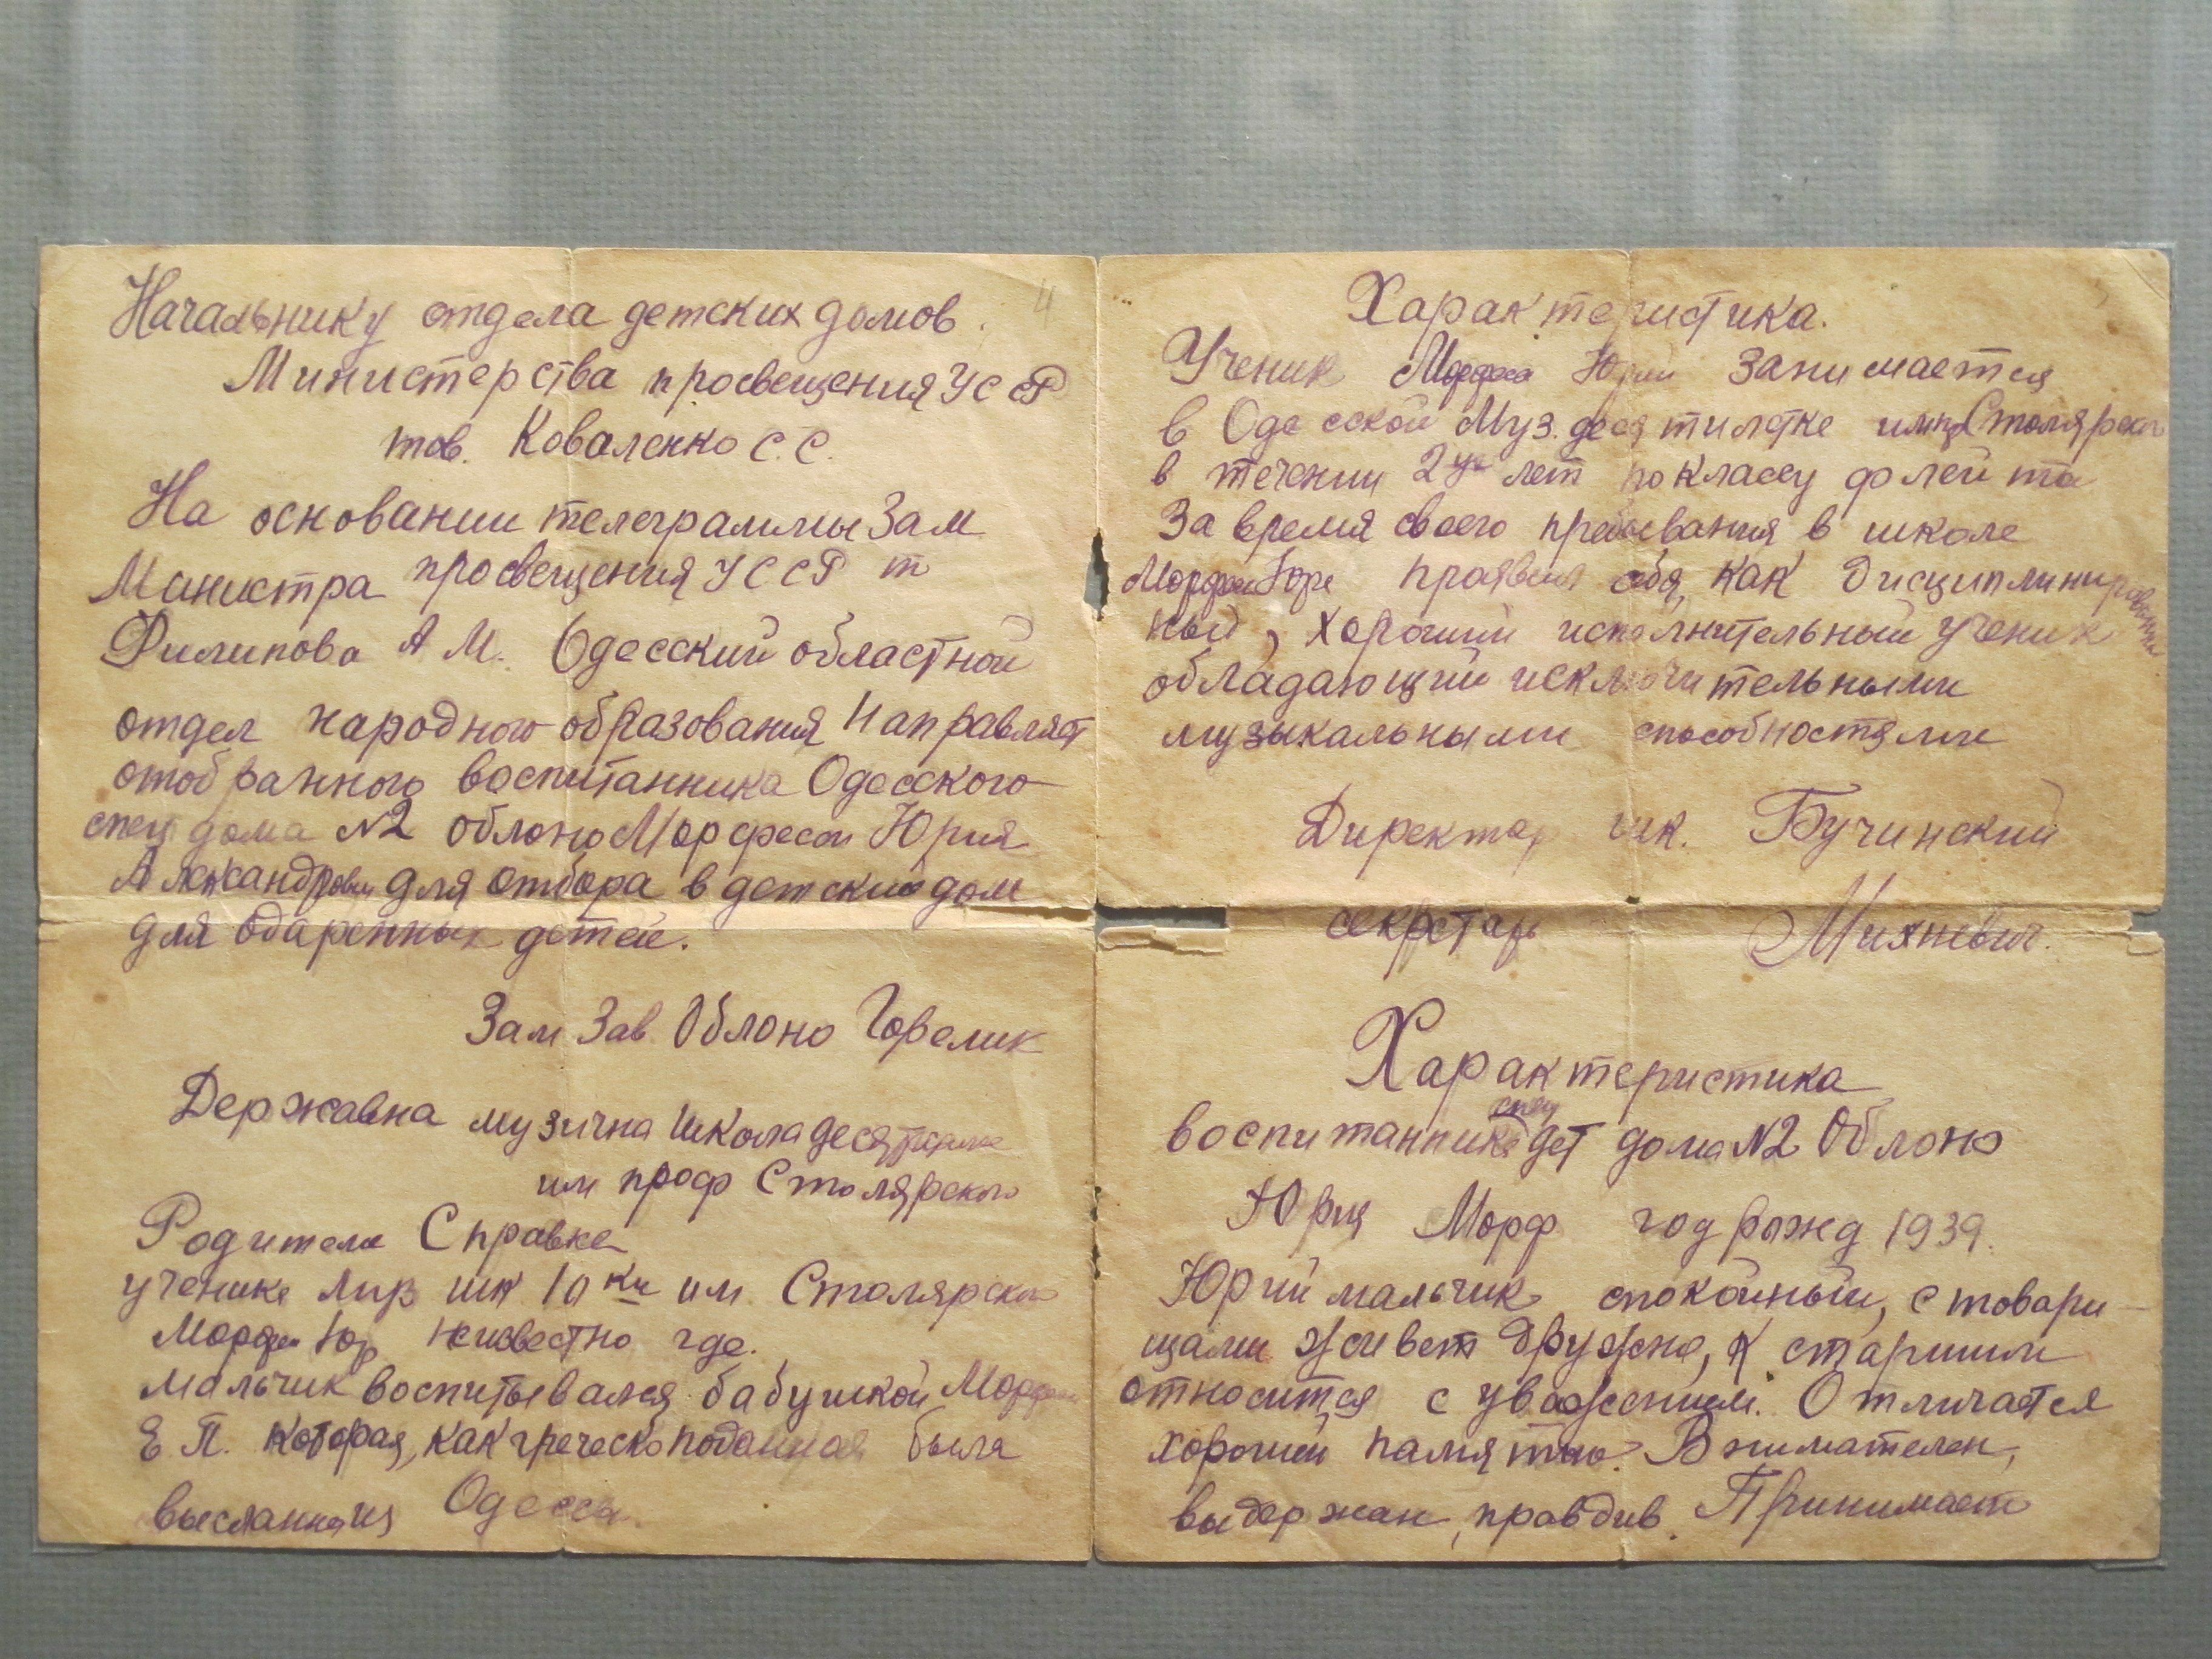 Начальнику отдела детских домов
Министерства просвещения УССР
тов. Коваленко С.С.
На основании телеграммы Зам
Министра просвещения УССР т
Филипова А М. Одесский областной
отдел народного образования направляет
отобранного воспитанника Одесского
спец дома №2 облоно Морфеси Юрия
для отбора в детский дом
для одаренных детей.
Зам Зав Облоно Горелик
Державна музична школа
им проф Столярского
Родители Справка
ученика шк 10 ки им Столярского
Юр неизвестно где.
Мальчик воспитывался бабушкой
Е.П. которая, как греческоподанная была
выслана из Одессы.
Характеристика.
Ученик Юрий занимается
в Одесской Муз. десятилетке Столярского
в течении 2ух лет по классу флейта
За время своего пребывания в школе
Юре проявил себя, как дисциплинирован
ный, хороший исполнительный ученик
обладающий исключительными
музыкальными способностями
Директор шк. Бучинский
секретарь Михневич.
Характеристика
воспитанника спец дет дома №2 Облоно
Юрия Морф год рожд 1939.
Юрий мальчик спокойный, с товари-
щами живет дружно, к старшим
относится с уважением. Отличается
хорошей памятью. Внимателен,
выдержан, правдив. Принимает